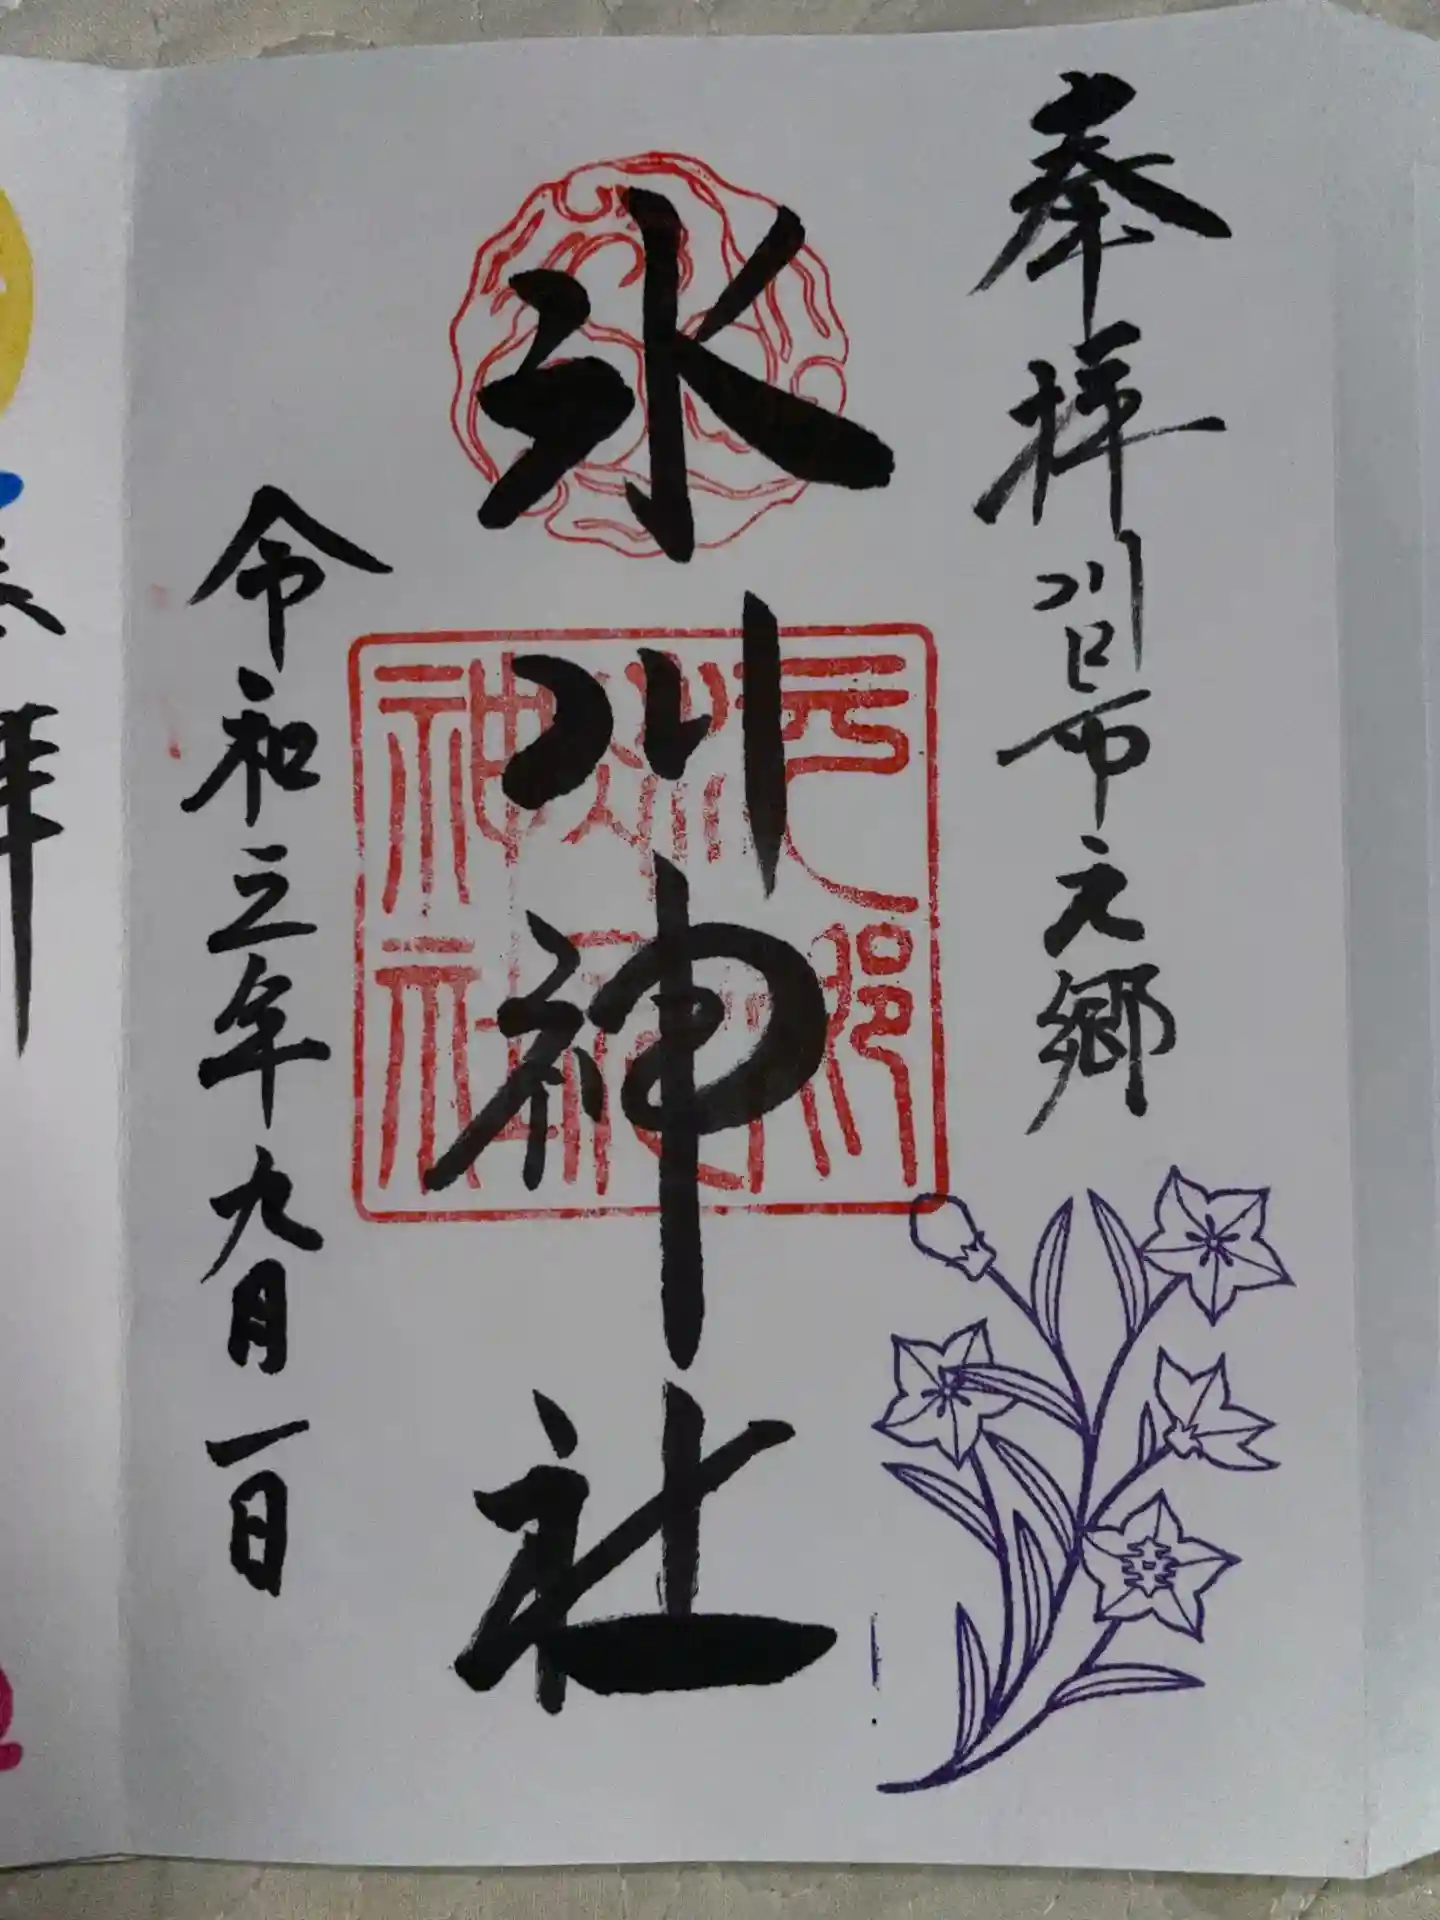 奉拝
川口市元郷
氷川神社
元郷
氷川神社
令和三年九月一日
奉拝